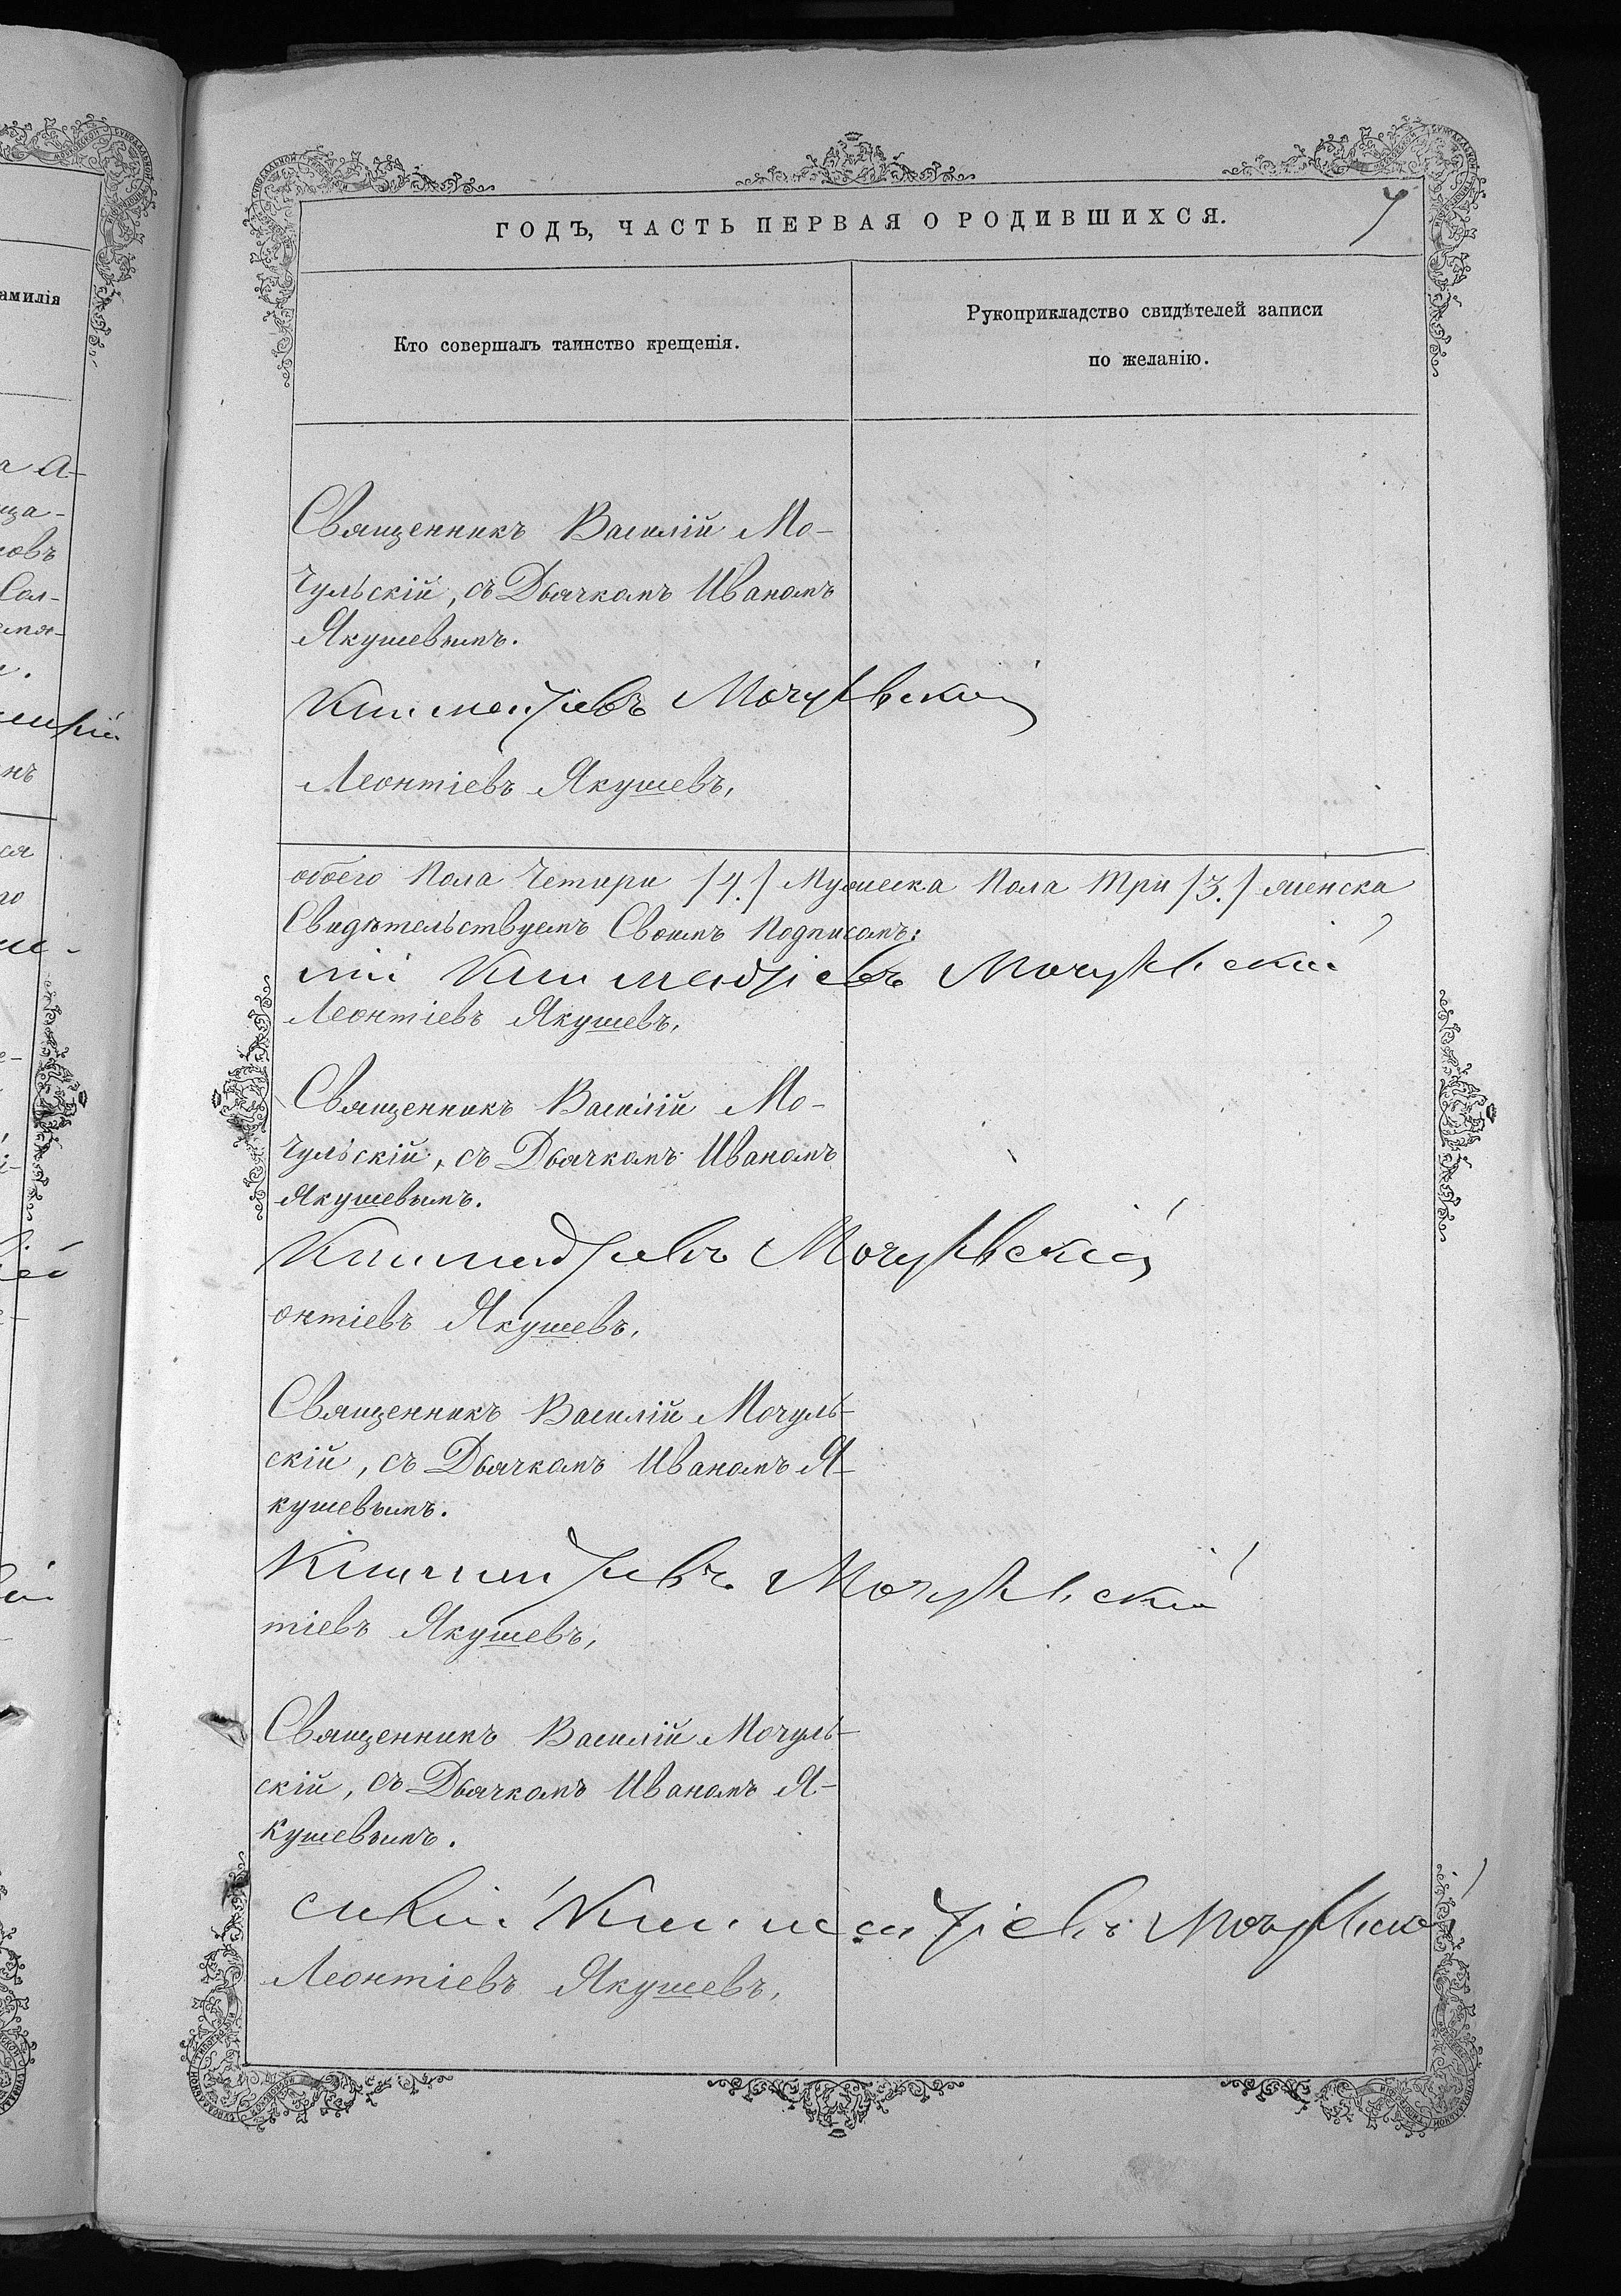 амилія
а А-
ща-
ковъ
Сол-
нъ
ся
го
ГОДЪ, ЧАСТЬ ПЕРВАЯ О РОДИВШИХСЯ.
7
Кто совершалъ таинство крещенія.
Рукоприкладство свидѣтелей записи
по желанію.
Священникъ Василій Мо-
чульскій, съ Дьячкомъ Иваномъ
Якушевымъ.
Мочульскій
Леонтіевъ Якушевъ,
обоего Пола Четыри /4./ Мужеска Пола Три /3./ женска
Свидѣтельствуемъ Своимъ Подписомъ:
Мочульскій
Леонтіевъ Якушевъ,
Священникъ Василій Мо-
чульскій, съ Дьячкомъ Иваномъ
Якушевымъ.
Мочульскій
онтіевъ Якушевъ,
Священникъ Василій Мочуль-
скій, съ Дьячкомъ Иваномъ Я-
кушевымъ.
Мочульскій
тіевъ Якушевъ,
Священникъ Василій Мочуль-
скій, съ Дьячкомъ Иваномъ Я-
кушевымъ.
Мочульскій
Леонтіевъ Якушевъ,